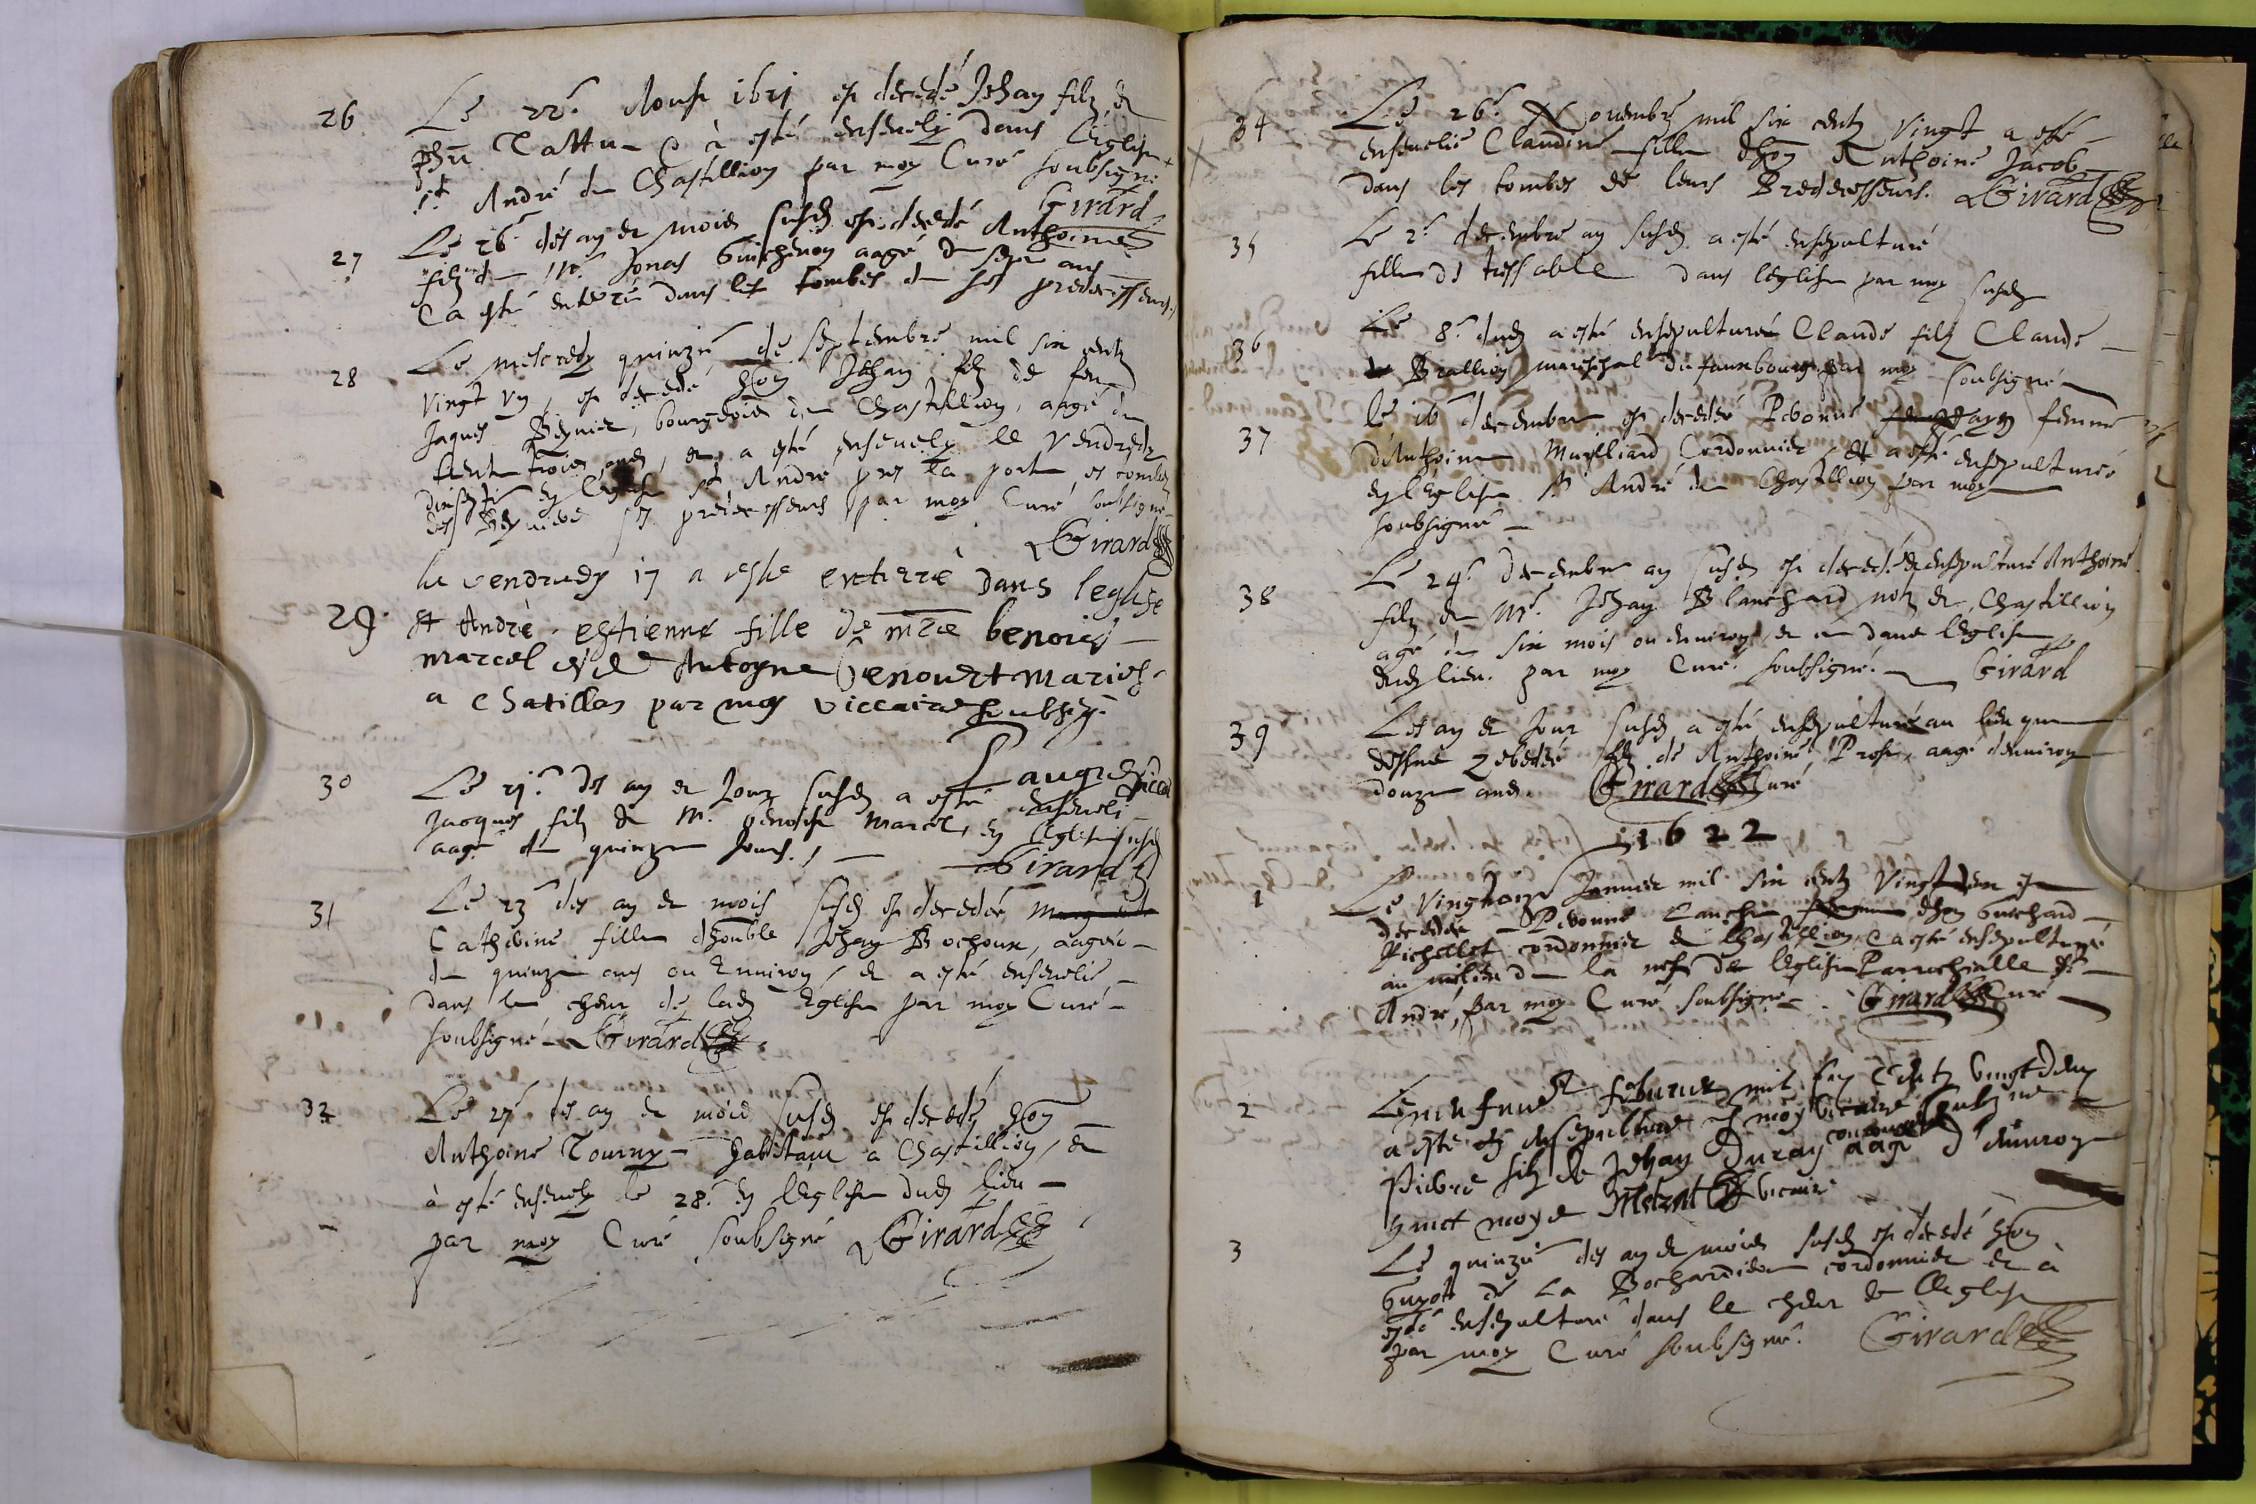 26
Le 22e Aoust 1621 est decedé Jehan filz de
Tattu à esté ensevely dans l'église
St André de Chastillion par moy Curé soubsigné
Girard
27
Le 26e des an et mois susd est decedé Anthoine
filz de Mr Jonas Guichenon aagé de sept ans
a esté enterré dans les tombes de ses predecesseurs
28
Le mescredy quinzie de septembre mil six centz
vingt un, est decedé hon Jehan filz de feu
Jaques Beynier, bourgeois de Chastillion, aagé de
trente trois ans, et a esté ensevely le vendredy
ensuyt en l'eglise St André pres la porte, es tombes
des Beyniers ses predecesseurs par moy Curé soubsigné
Girard
29
le vendredy 17 a este entierré dans leglise
st Andrè. estienne fille de mre benoict
marcel et de Antoyne benourt mariés
a chatillon par moy viccaire soubsig.
Laugier
30
Le 21e des an et Jour susd a esté ensevely
Jacques filz de Mr benoist Marcel, en l'eglise susd
aagé de quinze Jours.
Girard
31
Le 23 des an et mois susd est decedée
Catherine fille d'honble Jehan Bochoux, aagée
de quinze ans ou Environ, et a esté ensevelie
dans le cheur de lad Eglise par moy Curé
soubsigné Girard
32
Le 27e des an et mois susd est decedé hon
Anthoine Tourny habitant a Chastillion, et
à esté ensevely le 28e en l'eglise dud lieu
par moy Curé soubsigné Girard
34
Le 26e Novembre mil six centz vingt a esté
ensevelie Claudine fille d'hon Anthoine Jacob
dans les tombes de leurs Predecesseurs. Girard
35
Le 2e decembre an susd a esté ensepulturé
fille de dans leglise par moy susd
36
Le 8e dud a esté ensepulturé Claude filz Claude
Brallion mareschal du faurbourg par moy soubsigné
37
le 16 decembre est decedée Pevonne femme
d'Anthoine Muylliard Cordonnier, et a esté ensepulturée
en l'Eglise St André de Chastillion par moy
soubsigné
38
Le 24e decembre an susd est decedé et ensepulturé Anthoine
filz de Mr Jehan Blanchard not de Chastillion
agé de six mois ou environ, et ce dans l'eglise
dud lieu. par moy Curé soubsigné. Girard
39
Les an et Jour susd a esté ensepulturé au lieu que
dessus Zebedée filz de Anthoine Prost, aagé d'environ
douze ans. Girard Curé
1622
1
Le Janvier mil six centz Vingt deux est
decedée Pevonne d'hon Guichard
Pichollet cordonnier de Chastillion, a esté ensepulturé
au milieu de la nefz de l'eglise Parrochialle St
André, par moy Curé soubsigné. Girard Curé
2
Le febvrier mil six Centz Vingt deux
a este ensepulture moy vicaire soubsigne
Pierre filz de Jehan Duray aage d'environ
huict moys vicaire
3
Le quinzie des an et mois susd est decedé hon
Guyot de La Bochardiere cordonnier et à
esté ensepulturé dans le cheur de l'Eglise
par moy Curé soubsigné. Girard